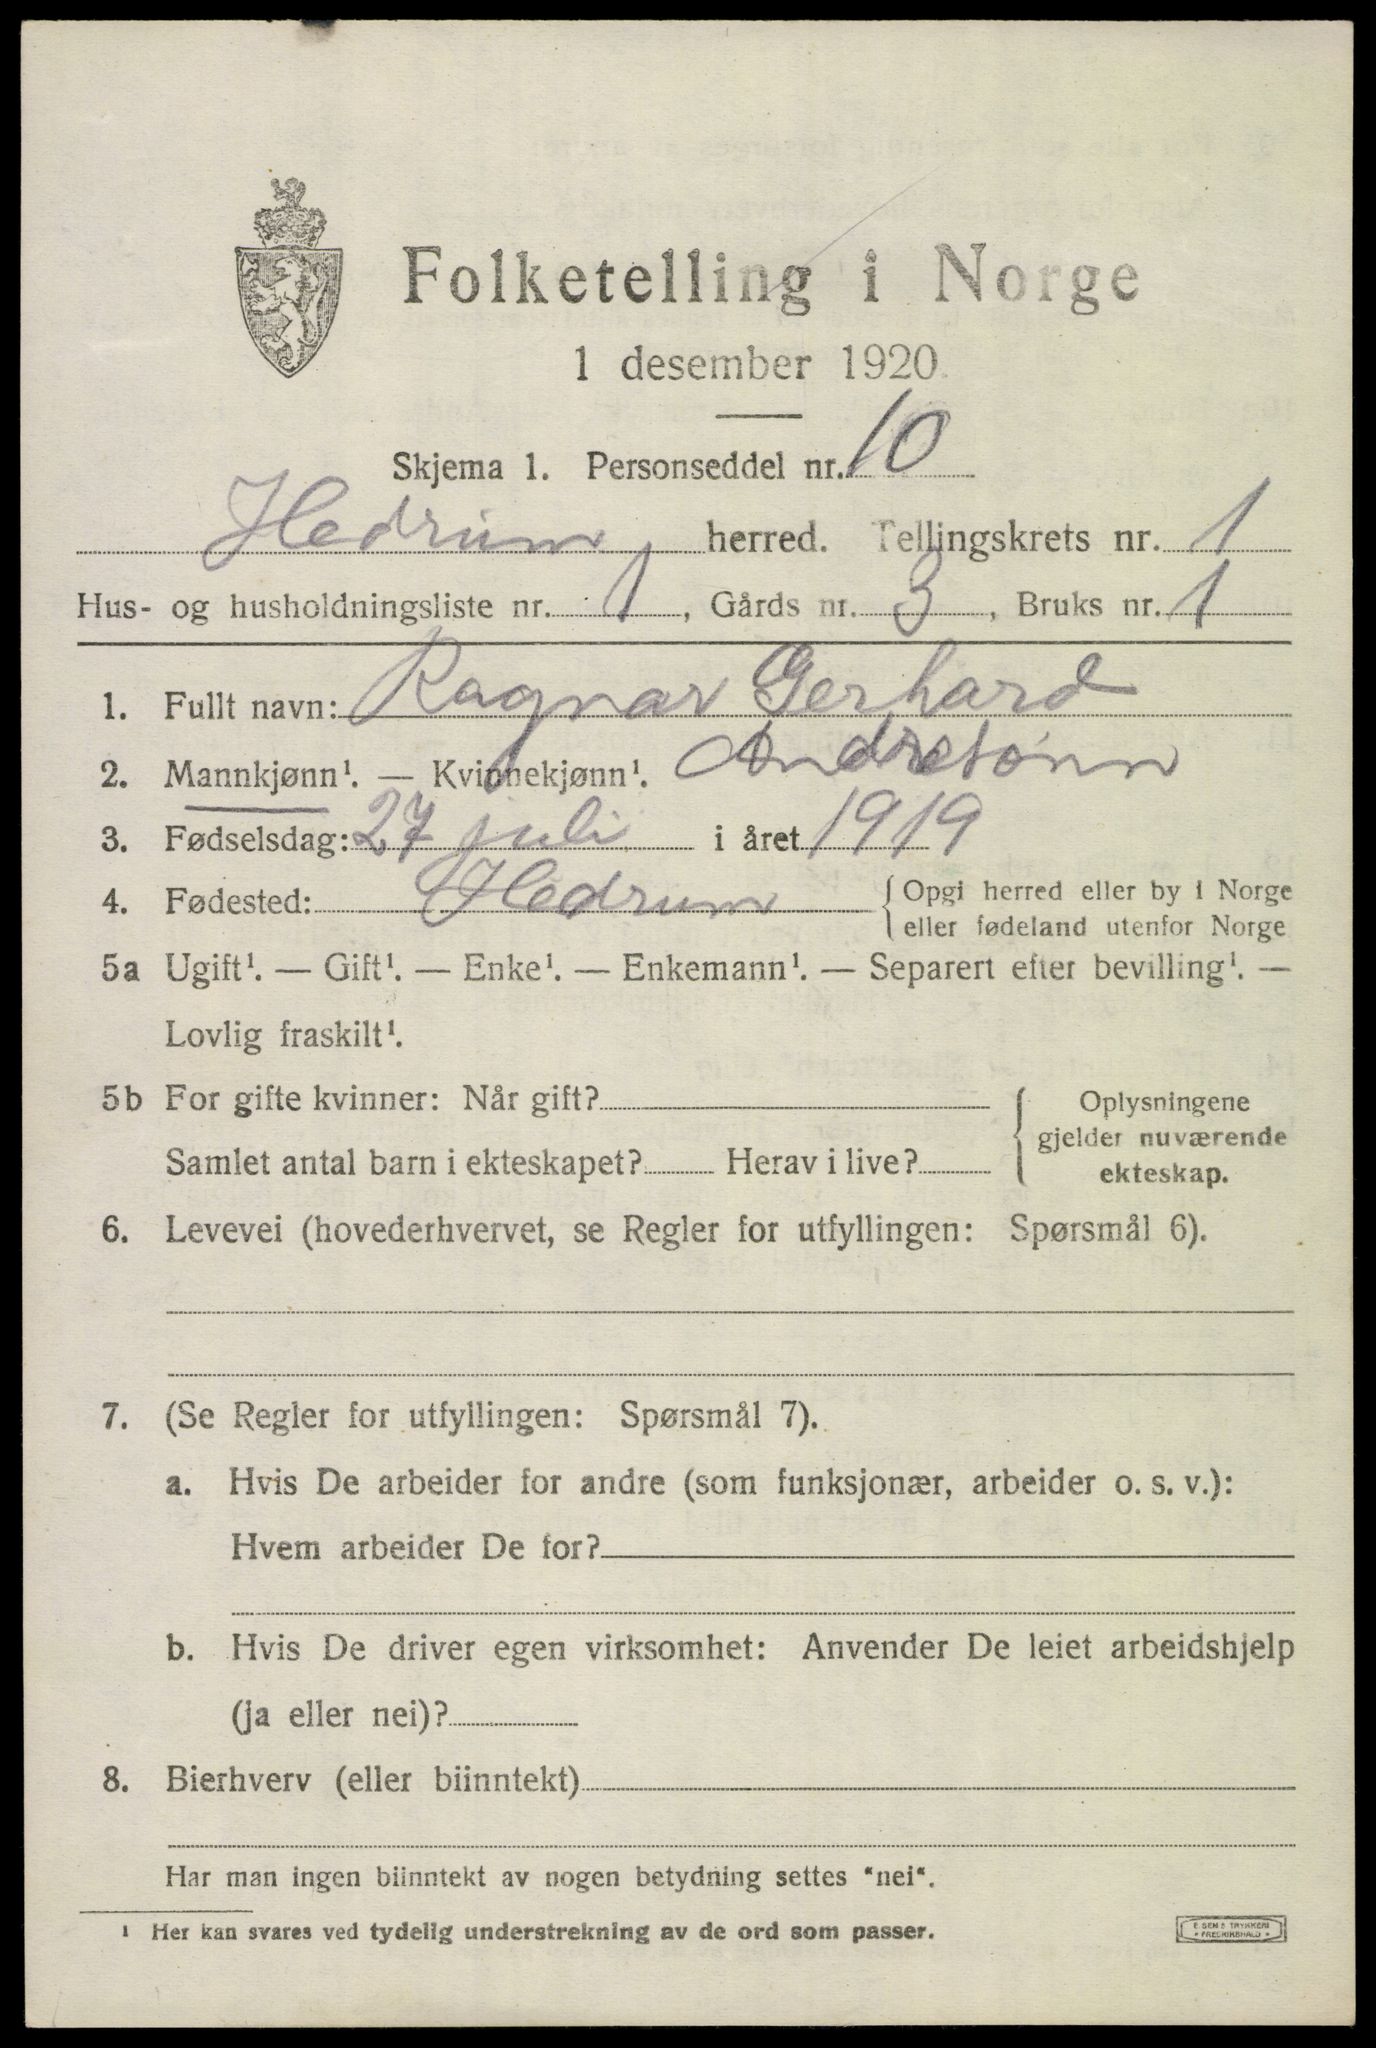 Folketelling i Norge
1 desember 1920.
Skjema 1. Personseddel nr. 10
Hedrum herred. Tellingskrets nr. 1
Hus- og husholdningsliste nr. 1, Gårds nr. 3, Bruks nr. 1
1. Fullt navn: Ragnar Gerhard
2. Mannkjønn¹. — Kvinnekjønn¹. Andresønn
3. Fødselsdag: 27 juli i året 1919
4. Fødested: Hedrum { Opgi herred eller by i Norge
eller fødeland utenfor Norge
5a Ugift¹. — Gift¹. — Enke¹. — Enkemann¹. — Separert efter bevilling¹. —
Lovlig fraskilt¹.
5b For gifte kvinner: Når gift?
Samlet antal barn i ekteskapet? Herav i live?
{ Oplysningene
gjelder nuværende
ekteskap.
6. Levevei (hovederhvervet, se Regler for utfyllingen: Spørsmål 6).
7. (Se Regler for utfyllingen: Spørsmål 7).
a. Hvis De arbeider for andre (som funksjonær, arbeider o. s. v.):
Hvem arbeider De for?
b. Hvis De driver egen virksomhet: Anvender De leiet arbeidshjelp
(ja eller nei)?
8. Bierhverv (eller biinntekt)
Har man ingen biinntekt av nogen betydning settes "nei".
¹ Her kan svares ved tydelig understrekning av de ord som passer.
E. SEM'S TRYKKERI
* FREDRIKSHALD *